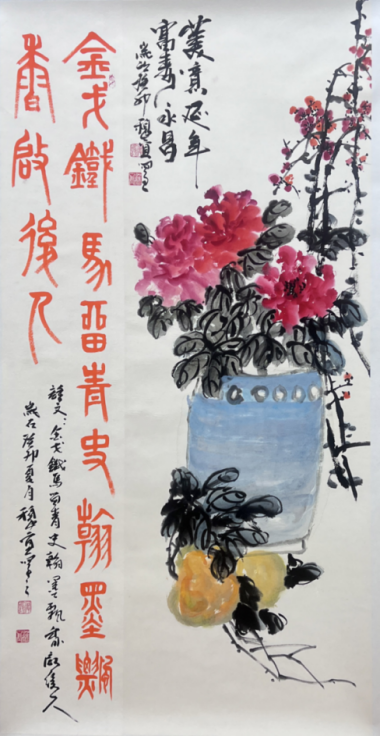 美意延年
富寿永昌
歲在癸卯
金戈鐵馬畱青史翰墨飄
香啟後人
釋文：金戈鐵馬留青史翰墨飄香啟後人
歲在癸卯夏月